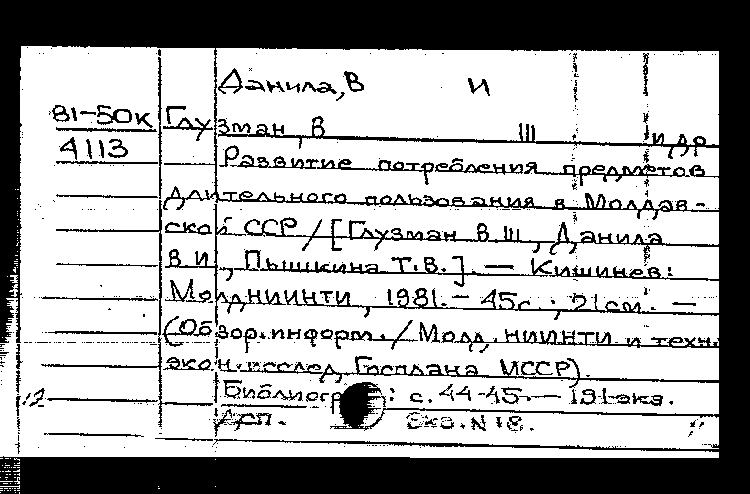 Данила, В И
81-50к Глузман, В Ш и др
4113 Развитие потребления предметов
длительного пользования в Молдав-
ской ССР / [Глузман В.Ш., Данила
В.И., Пышкина Т.В.]. — Кишинев:
МолдНИИНТИ, 1981. — 45с.; 21см. —
(Обзор. информ. / Молд. НИИНТИ и техн.
экон. исслед. Госплана МССР).
12 Библиогр: с. 44-45. — 191 экз.
Экз. N 18.